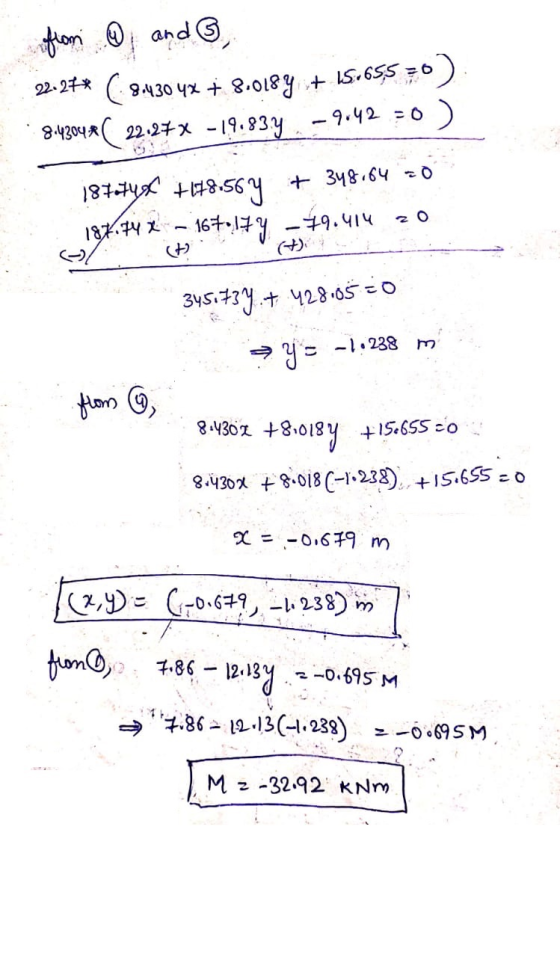 from ④ and ⑤,
22.27* ( 8.4304x + 8.018y + 15.655 = 0 )
8.4304* ( 22.27x - 19.83y - 9.42 = 0 )
187.74x + 178.56y + 348.64 = 0
187.74x - 167.17y - 79.414 = 0
(-) (+) (+)
345.73y + 428.05 = 0
⇒ y = -1.238 m
from ④,
8.430x + 8.018y + 15.655 = 0
8.430x + 8.018(-1.238) + 15.655 = 0
x = -0.679 m
(x,y) = (-0.679, -1.238) m
from ①, 7.86 - 12.13y = -0.695 M
⇒ 7.86 - 12.13(-1.238) = -0.695M
M = -32.92 KNm